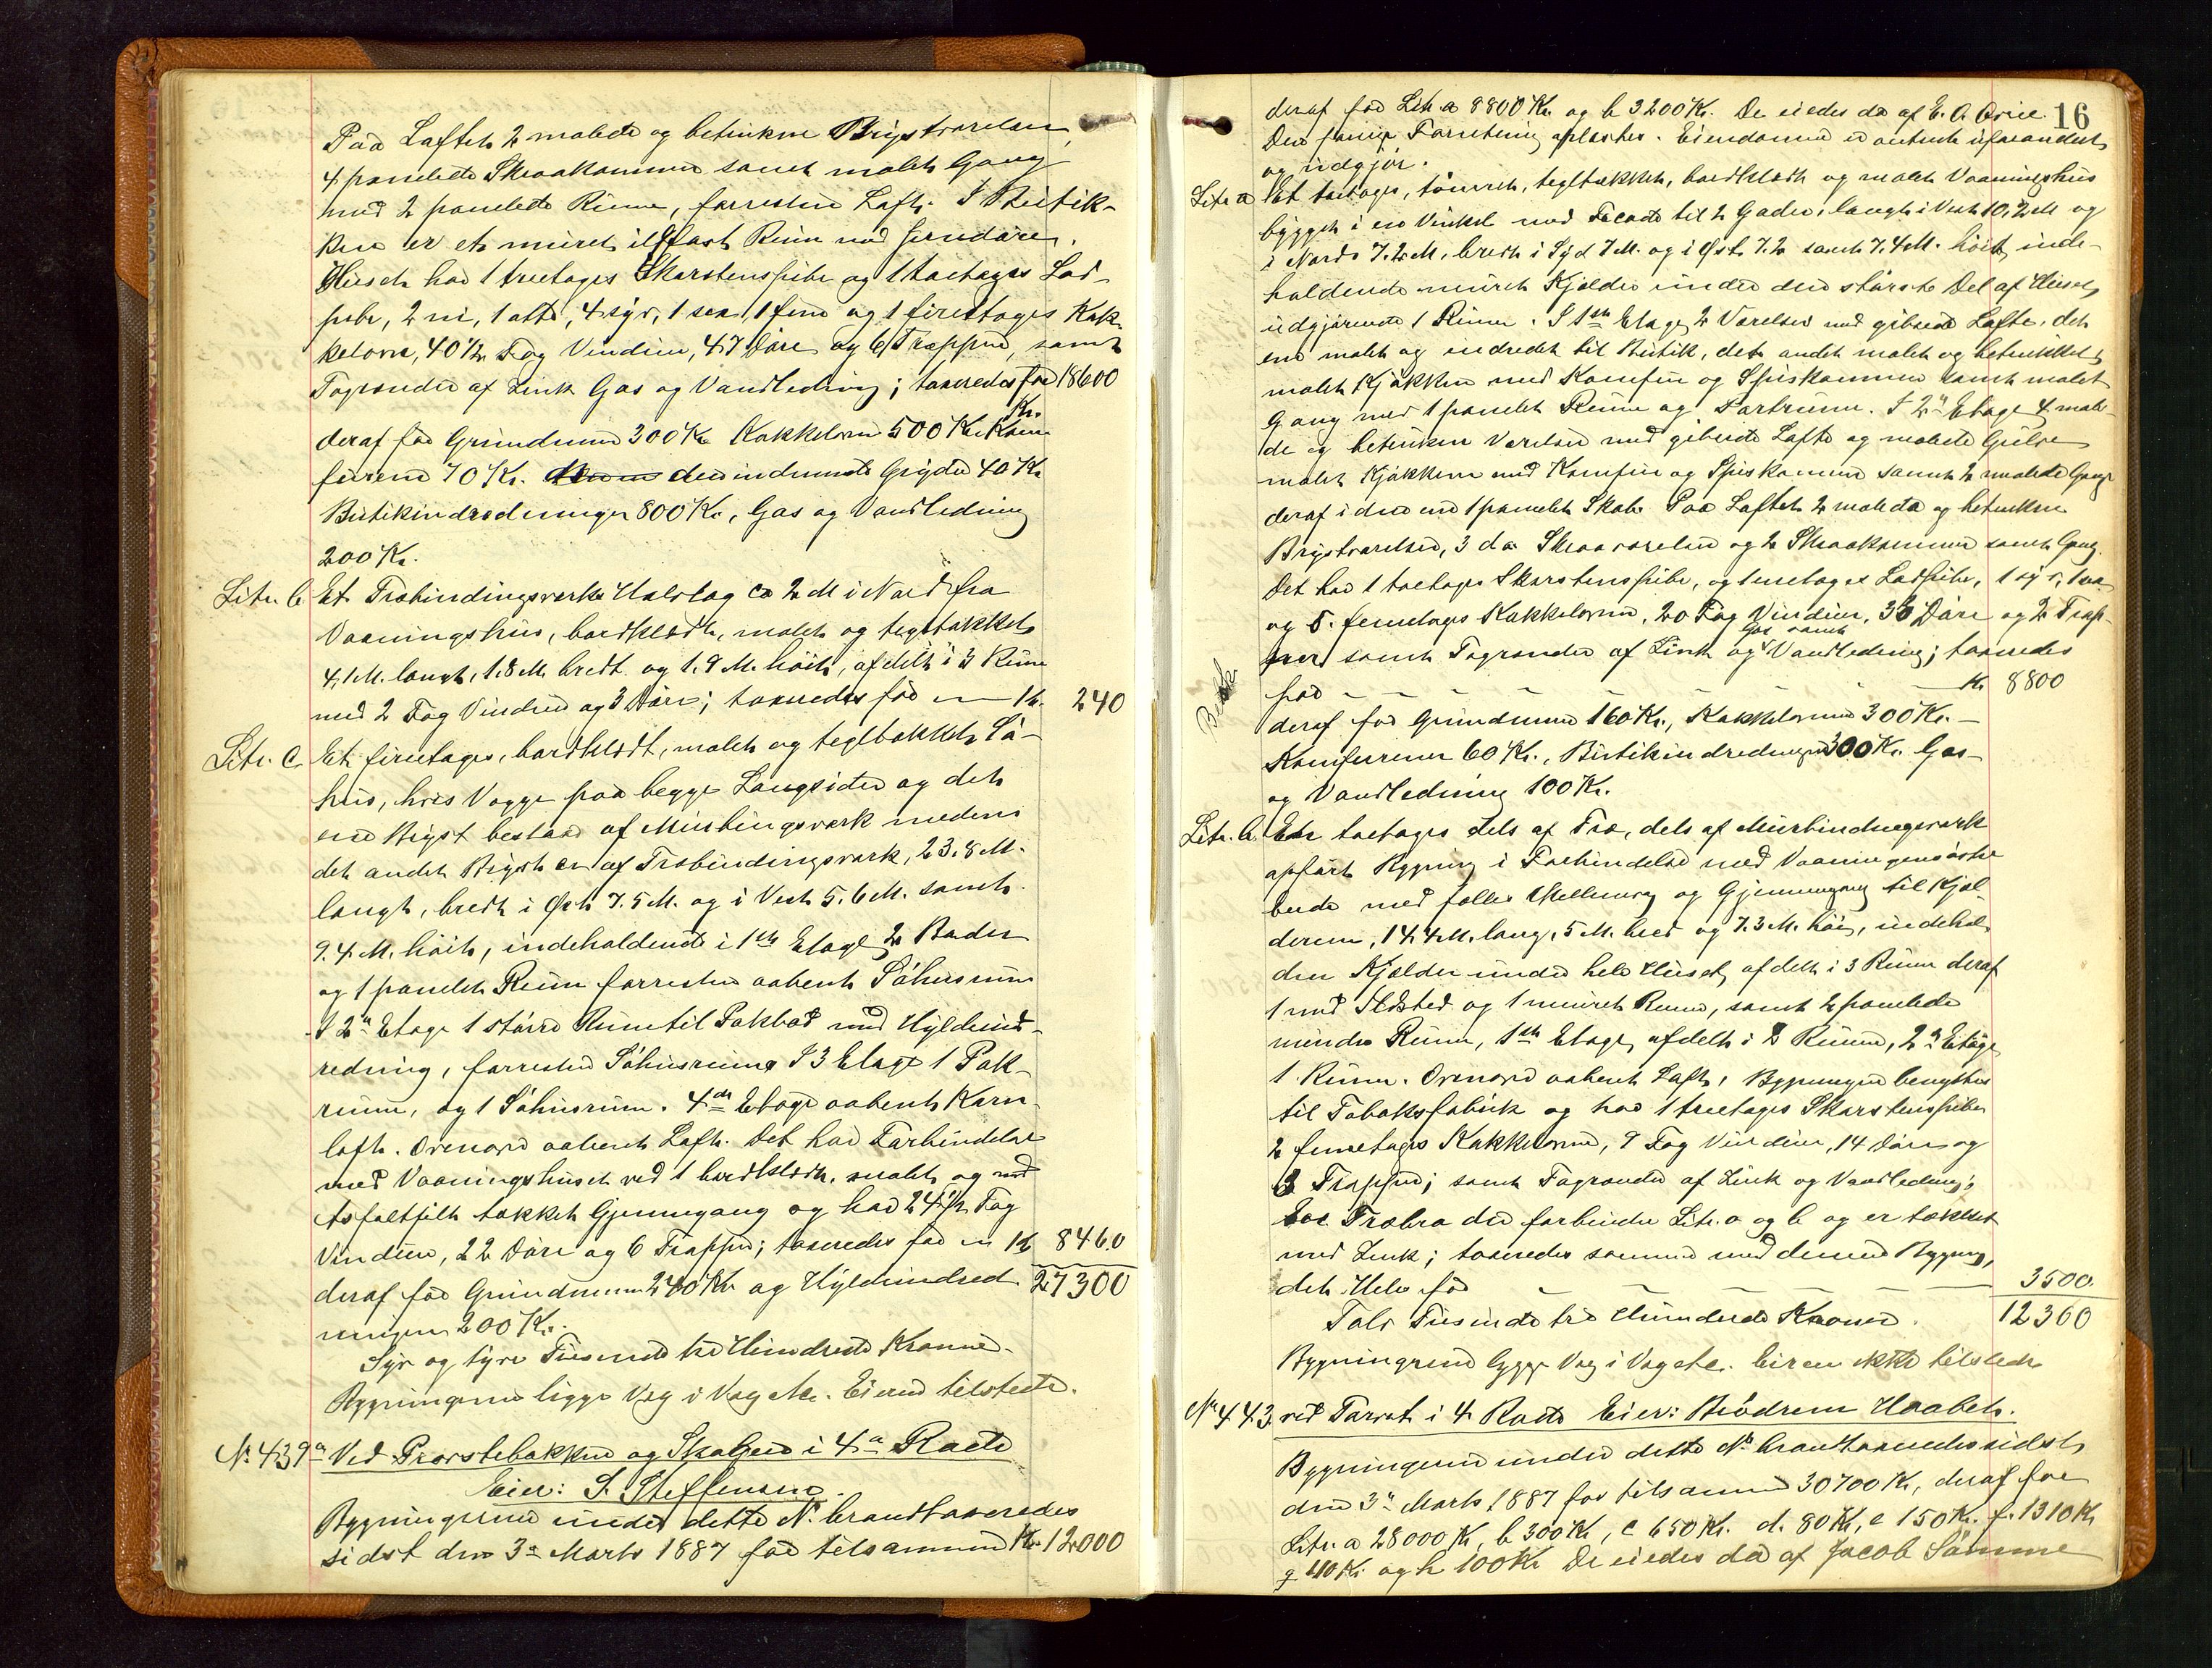 Paa Loftet 2 malede og betrukne Brystværelser,
4 panelede Skraakammer samt malet Gang
med 2 panelede Rum, forresten Loft. I Butik-
ken er et muret ildfast Rum med Jerndøre.
Huset har 1 treetages Skorstenspibe og 1 toetages Lod-
pibe, 2 ni, 1 otte, 4 syv, 1 sex, 1 fem og 1 fireetages Kak-
kelovne, 40 1/2 Fag Vinduer, 47 Døre og 6 Trapper, samt
Tagrender af Zink Gas og Vandledning; taxeredes for 18600
Kr.
deraf for Grundmuren 300 Kr. Kakkelovne 500 Kr. Kom-
furene 70 Kr. den indmurede Gryde 40 Kr.
Butikindredninger 800 Kr., Gas og Vandledning
200 Kr.
Litr. b Et Træbindingsverks Halvtag ca 2 M i Nord fra
Vaaningshus, bordklædt, malet og tegltækket
4,1 M. langt, 1.8 M. bredt og 1.9 M. høit, afdelt i 3 Rum
med 2 Fag Vinduer og 3 Døre; taxeredes for — Kr. 240
Litr. c. Et fireetages, bordklædt, malet og tegltækket Sø-
hus, hvis Vægge paa begge Langsider og det
ene Bryst bestaar af Murbingsverk medens
det andet Bryst er af Træbindingsverk, 23.8 M.
langt, bredt i Øst 7.5 M. og i Vest 5.6 M. samt
9.4 M. høit, indeholdende i 1ste Etage 2 Boder
og 1 panelet Rum forresten aabent Søhusrum
I 2n Etage 1 større Rum til Pakbod med Hyldeind-
redning, forresten Søhusrum. I 3 Etage 1 Pak-
rum, og 1 Søhusrum. 4de Etage aabent Korn-
loft. Ovenover aabent Loft. Det har Forbindelse
med Vaaningshuset ved 1 bordklædt, malet og med
Asfaltfilt tækket Gjennemgang og har 24 1/2 Fag
Vinduer, 22 Døre og 6 Trapper; taxeredes for — Kr 8460
deraf for Grundmuren 240 Kr. og Hyldeindred- 27300
ningen 200 Kr.
Syv og tyve Tusende tre Hundrede Kroner.
Bygningerne ligge Væg i Væg etc. Eieren tilstede.
No. 439a Ved Provstebakken og Skagen i 4a Rode
Eier: S. Steffensen.
Bygningerne under dette No. brandtaxeredes
sidst den 3e Marts 1887 for tilsammen Kr. 12000
16
deraf for Litr. a 8800 Kr. og b 3200 Kr. De eiedes da af
Den Forretning oplæstes. Eiendommen er antruffet uforandret
og udgjør.
Litr. a Et toetages, tømret, tegltækket, bordklædt og malet Vaaningshus
bygget i en Vinkel med Facade til 2 Gader, langt i Vest 10,2 M og
i Nord 7.2 M, bredt i Syd 7 M. og i Øst 7.2 samt 7.4 M. høit, inde-
holdende muret Kjælder under den største Del af Huset,
udgjørende 1 Rum. I 1ste Etage, 2 Værelser med gibsede Lofte, det
ene malet og indredet til Butik, det andet malet og betrukket,
malet Kjøkken med Komfur og Spiskammer samt malet
Gang med 1 panelet Rum og Portrum. I 2n Etage 4 male-
de og betrukne Værelser med gibsede Lofte og malede Gulve
malet Kjøkken med Komfur og Spiskammer samt 2 malede Gange
deraf i den ene 1 panelet Skab. Paa Loftet 2 malede og betrukne
Brystværelser, 3 da Skraaværelser og 2 Skraakammer samt Gang.
Det har 1 toetages Skorstenspibe, og 1 enetages Lodpibe, 1 syv,
og 5 femetages Kakkelovne, 20 Fag Vinduer, 36 Døre og 2 Trap-
Gas samt
per samt Tagrender af Zink og Vandledning; taxeredes
for — — — Kr. 8800
deraf for Grundmuren 160 Kr., Kakkelovnene 300 Kr.
Komfurerne 60 Kr., Butikindredningen 300 Kr. Gas-
og Vandledning 100 Kr.
Litr. b. En toetages dels af Træ, dels af Murbindingsverk
opført Bygning i Forbindelse med
med fælles Skillevæg og Gjennemgang til Kjæl-
deren, 14,4 M. lang, 5 M. bred og 7.3 M. høi, indehol-
der Kjælder under hele Huset, afdelt i 3 Rum deraf
1 med Ildsted og 1 muret Rum, samt 2 panelede
mindre Rum, 1ste Etage, afdelt i 2 Rum, 2n Etage
1 Rum. Ovenover aabent Loft, Bygningen benyttes
til Tobaksfabrik og har 1 treetages Skorstenspibe
2 femetages Kakkelovne, 9 Fag Vinduer, 14 Døre og
3 Trapper; samt Tagrender af Zink og Vandledning;
Træbro der forbinder Litr. a og b og er tækket
med Zink; taxeredes sammen med denne Bygning,
det Hele for — — — 3500.
Tolv Tusinde tre Hundrede Kroner. 12300
Bygningerne ligge Væg i Væg etc. Eieren ikke tilstede
No. 443. ved Torvet i 4 Rode Eier: Brødrene Haabeth.
Bygningerne under dette No. brandtaxeredes sidst,
den 3e Marts 1887 for tilsammen 30700 Kr, deraf for
Litr. a 28000 Kr, b 300 Kr, c 650 Kr. d. 80 Kr, e 150 Kr. f. 1310 Kr
g. 110 Kr. og h 100 Kr. De eiedes da af Jacob Sømme